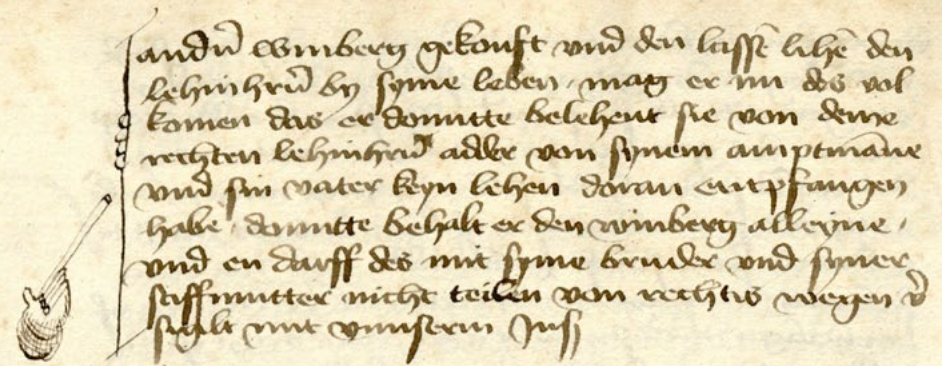 andñ winberg gekouft vnd den lassē lihē den
lehinhrñ by syme leben mag er nu des vol
komen das er domitte belehent sie von deme
rechten lehinhrñ adder von synem amptmāne
vnd sin vater keyn lehen doran entpfangen
habe domitte behalt er den winberg alleyne
vnd en darff des mit syme bruder vnd syner
stiffmutter nicht teilen von rechtis wegen v̄
sigilt mit vnnserm Jnß